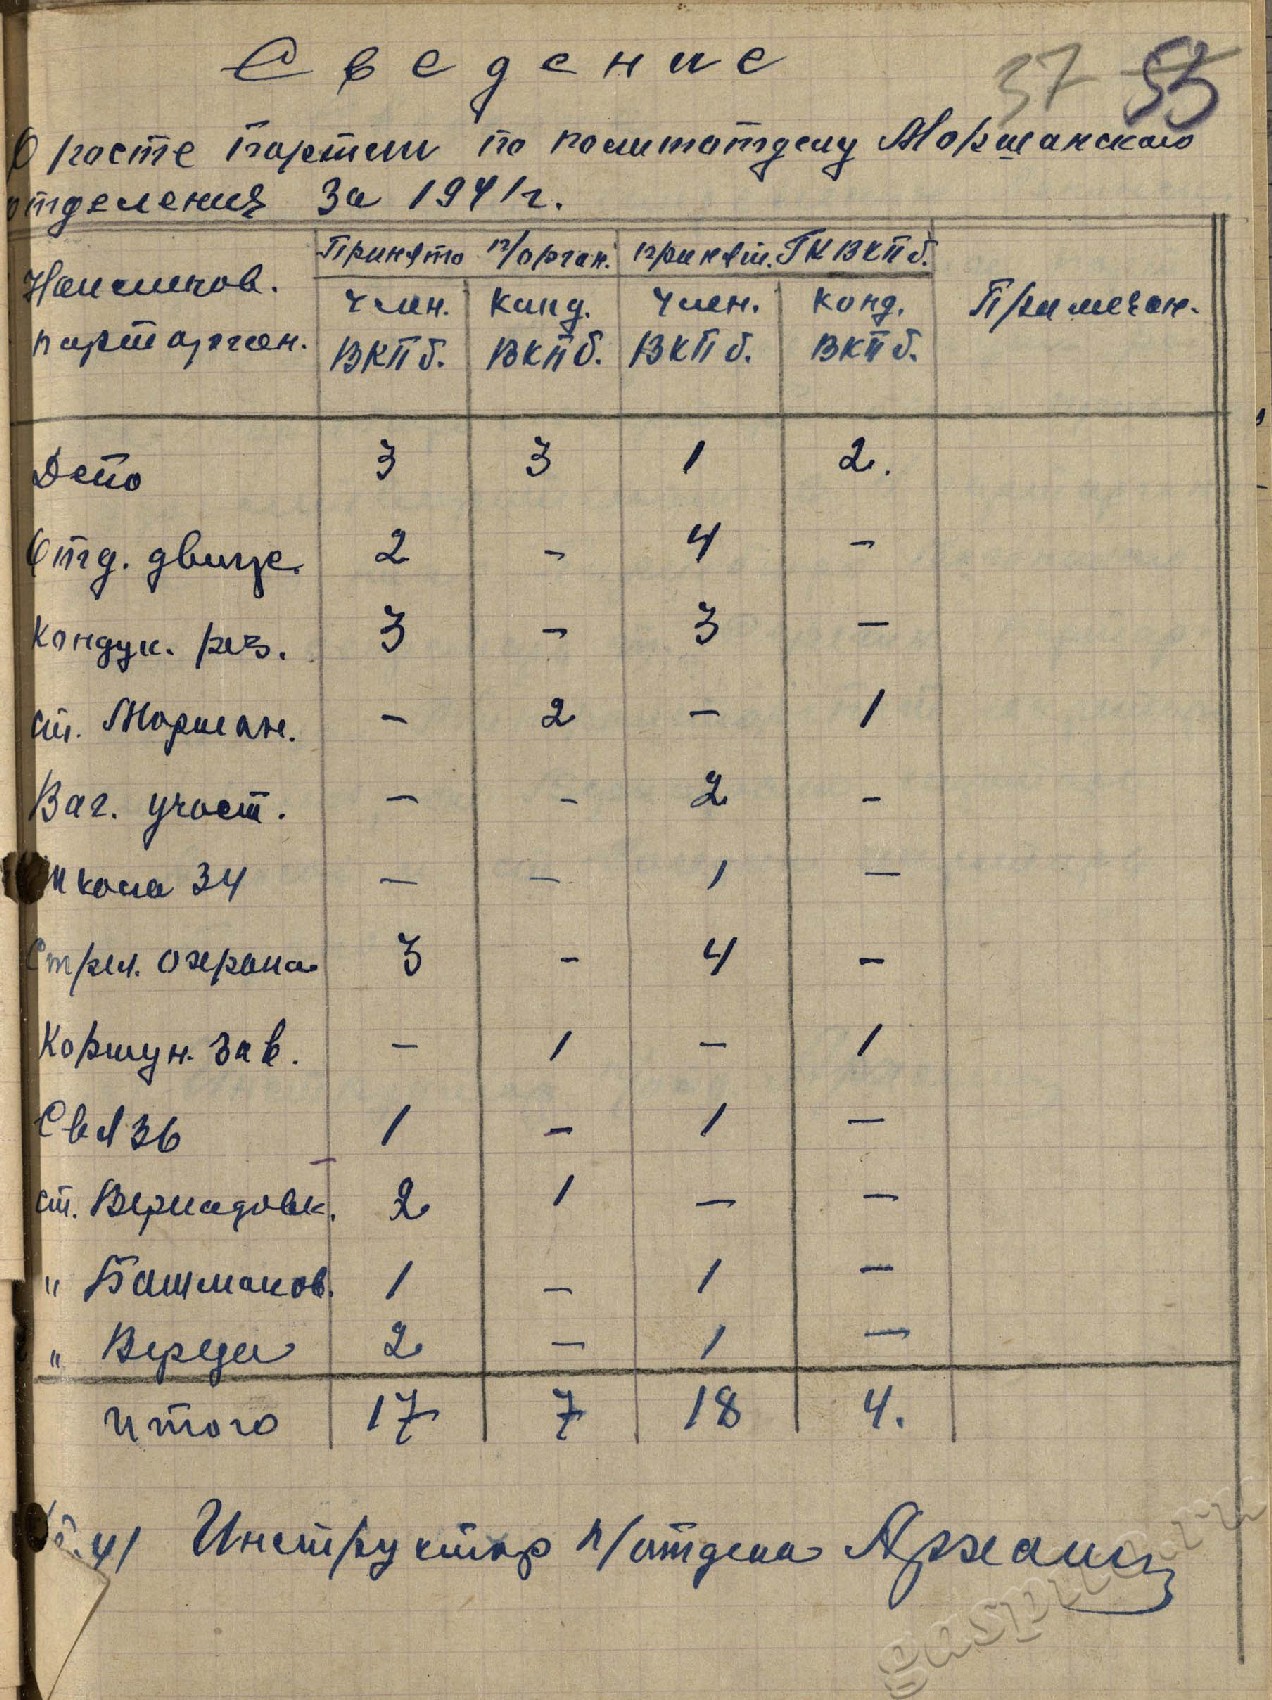 Сведение
37 55
О росте партии по политотделу Моршанского
отделения за 1941г.
Наименов. партарган. Принято п/орган. принят. ГК ВКПб. Примечан.
Член. ВКПб. Канд. ВКПб. Член. ВКПб. Конд. ВКПб.
Депо 3 3 1 2.
Отд. движ. 2 - 4 -
Кондук. рез. 3 - 3 -
ст. Моршан. - 2 - 1
Ваг. участ. - - 2 -
Школа 34 - - 1 -
Стрел. охрана 3 - 4 -
Коршун. зав. - 1 - 1
Связь 1 - 1 -
ст. Вернадовк. 2 1 - -
" Башмаков. 1 - 1 -
" Верда 2 - 1 -
Итого 17 7 18 4.
41 Инструктор п/отдела
gaspito.ru